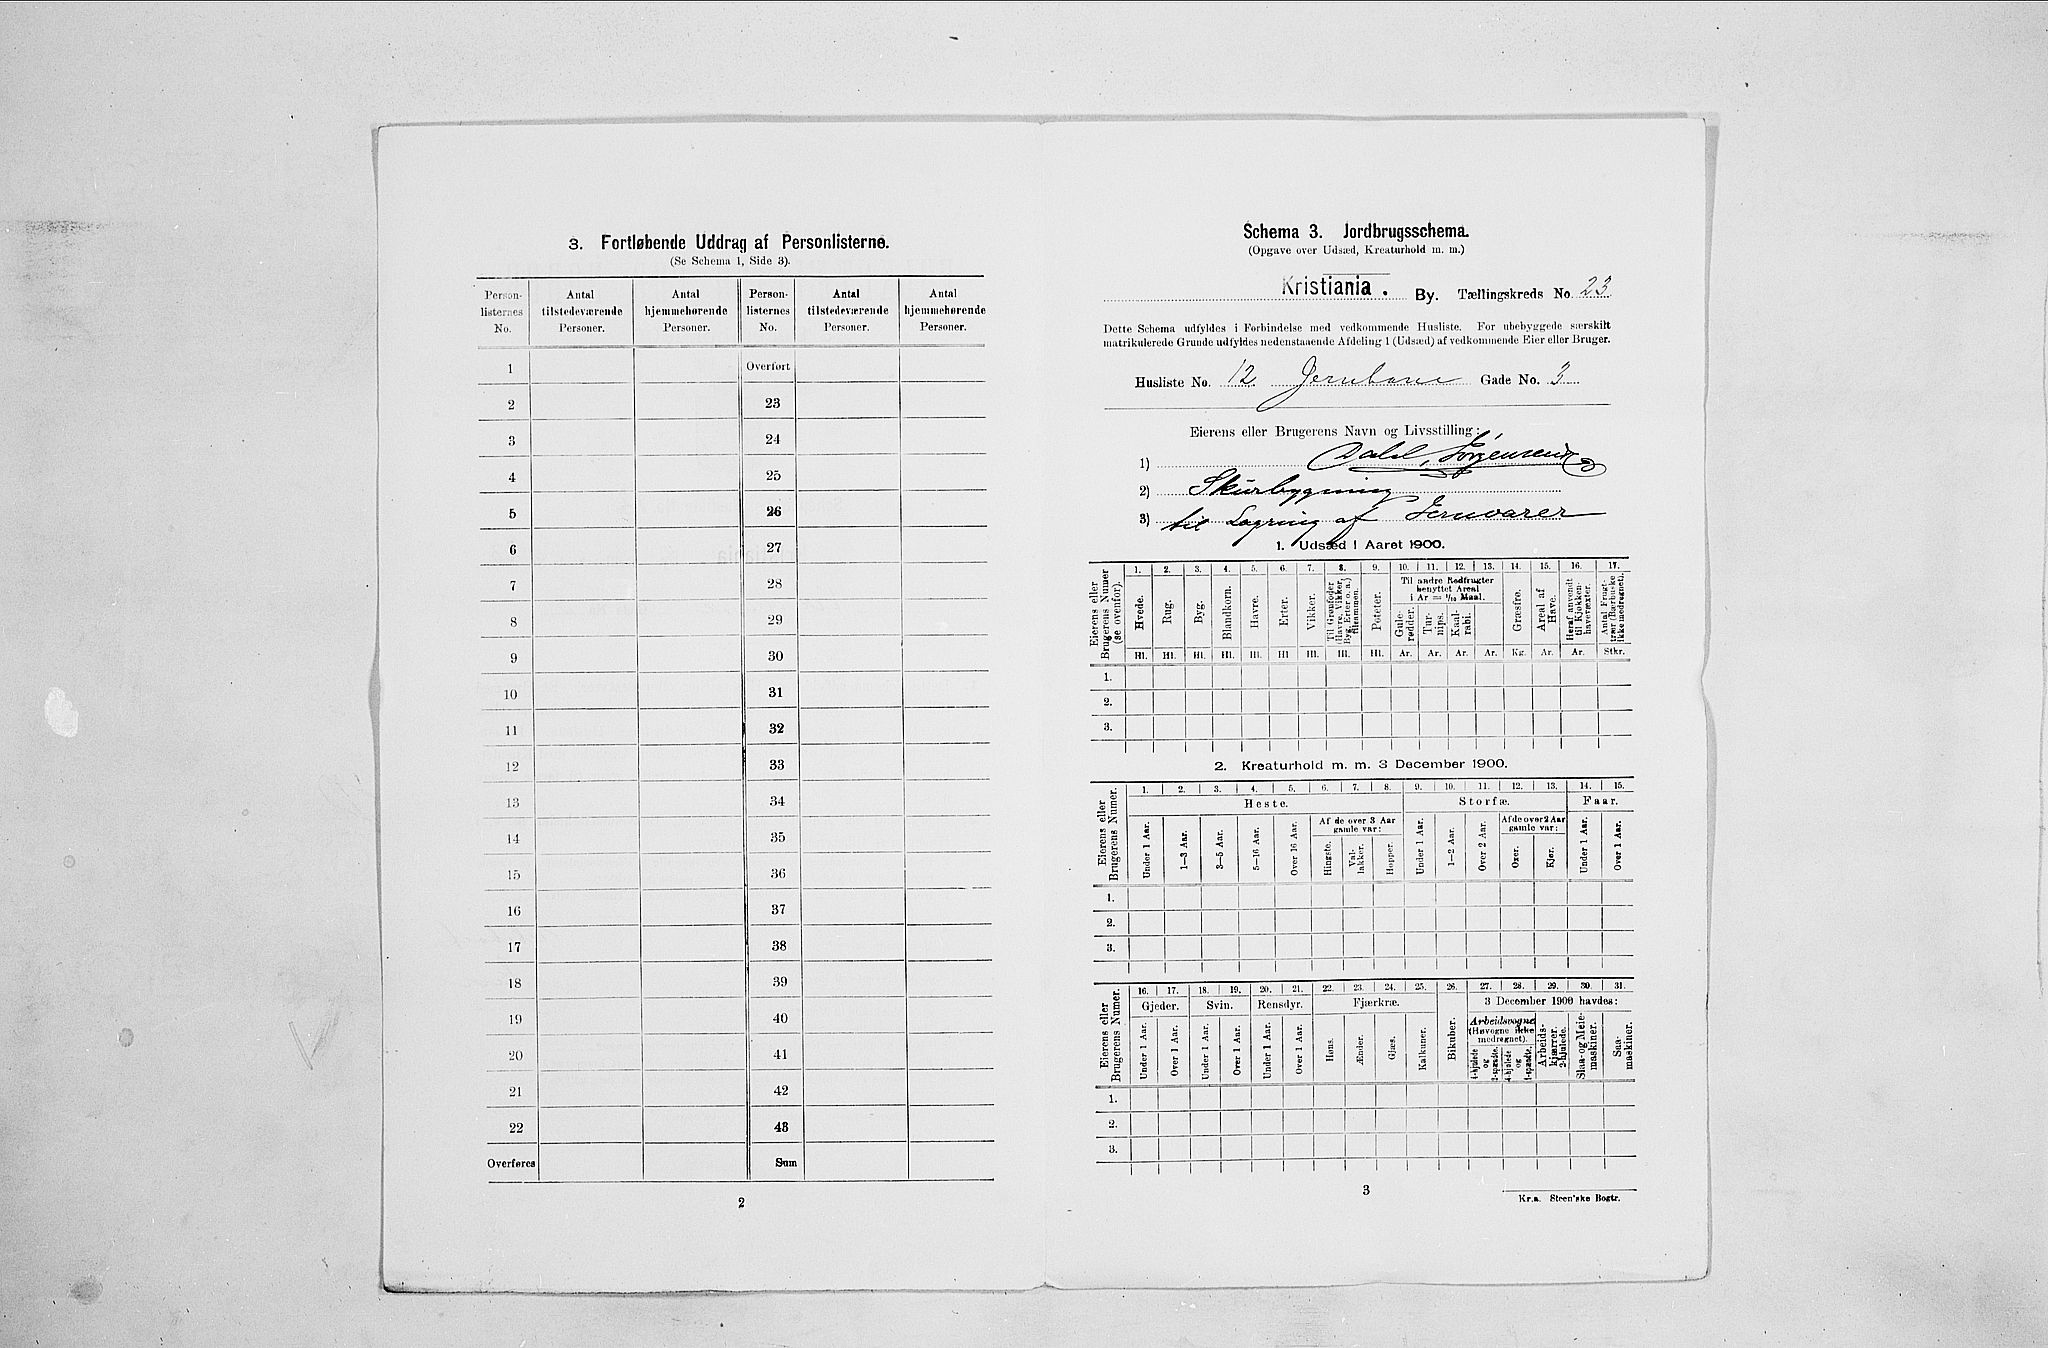 3. Fortløbende Uddrag af Personlisterne.
(Se Schema 1, Side 3).
Person-listernes No. | Antal tilstedeværende Personer. | Antal hjemmehørende Personer. | Person-listernes No. | Antal tilstedeværende Personer. | Antal hjemmehørende Personer.
1 Overført
2 23
3 24
4 25
5 26
6 27
7 28
8 29
9 30
10 31
11 32
12 33
13 34
14 35
15 36
16 37
17 38
18 39
19 40
20 41
21 42
22 43
Overføres Sum
2
Schema 3. Jordbrugsschema.
(Opgave over Udsæd, Kreaturhold m. m.)
Kristiania. By. Tællingskreds No. 23
Dette Schema udfyldes i Forbindelse med vedkommende Husliste. For ubebyggede særskilt
matrikulerede Grunde udfyldes nedenstaaende Afdeling 1 (Udsæd) af vedkommende Eier eller Bruger.
Husliste No. 12 Jernbane Gade No. 3
Eierens eller Brugerens Navn og Livsstilling:
1) Dahl, Jörgensen
2) Skurbygning
3) til Lagring af Jernvarer
1. Udsæd i Aaret 1900.
Eierens eller Brugerens Numer (se ovenfor).
1. 2. 3. 4. 5. 6. 7. 8. 9. 10. 11. 12. 13. 14. 15. 16. 17.
Til andre Rodfrugter benyttet Areal i Ar = 1/10 Maal.
Hvede. Rug. Byg. Blandkorn. Havre. Erter. Vikker. Til Grønfoder (Havre, Vikker, Byg, Erter o. a.) tilsammen. Poteter. Gule-rødder. Tur-nips. Kaal-rabi. Græsfrø. Areal af Have. Heraf anvendt til Kjøkken-havevæxter. Antal Frugt-trær (Bærbuske ikke medregnet).
Hl. Hl. Hl. Hl. Hl. Hl Hl. Hl. Hl. Ar. Ar. Ar. Ar. Kg. Ar. Ar. Stkr.
1.
2.
3.
2. Kreaturhold m. m. 3 December 1900.
Eierens eller Brugerens Numer.
1. 2. 3. 4. 5. 6. 7. 8. 9. 10. 11. 12. 13. 14. 15.
Heste. Storfæ. Faar.
Af de over 3 Aar gamle var: Af de over 2 Aar gamle var:
Under 1 Aar. 1—3 Aar. 3—5 Aar. 5—16 Aar. Over 16 Aar. Hingste. Val-lakker. Hopper. Under 1 Aar. 1—2 Aar. Over 2 Aar. Oxer. Kjør. Under 1 Aar. Over 1 Aar.
1.
2.
3.
Eierens eller Brugerens Numer.
16. 17. 18. 19. 20. 21. 22. 23. 24. 25. 26. 27. 28. 29. 30. 31.
Gjeder. Svin. Rensdyr. Fjærkræ. 3 December 1900 havdes:
Arbeidsvogne (Høvogne ikke medregnet).
Under 1 Aar. Over 1 Aar. Under 1 Aar. Over 1 Aar. Under 1 Aar. Over 1 Aar. Høns. Ænder. Gjæs. Kalkuner. Bikuber. 4-hjulede og 2-spændte. 4-hjulede og 1-spændte. Arbeids-kjærrer. 2-hjulede. Slaa- og Meie-maskiner. Saa-maskiner.
1.
2.
3.
3
Kr.a. Steen'ske Bogtr.